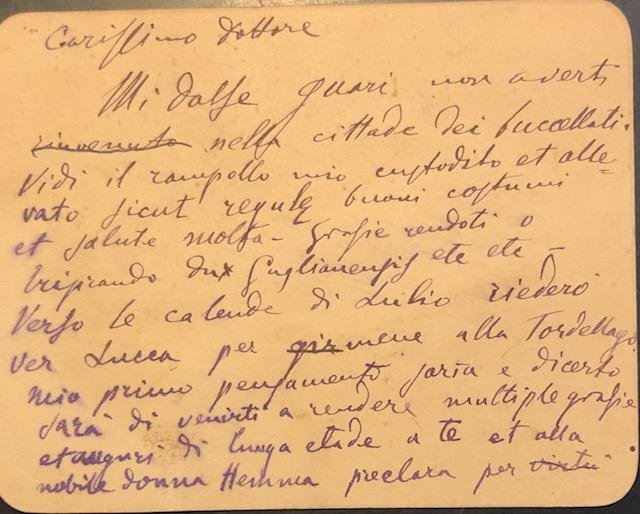 Carissimo dottore
Mi dolse guari non averti
rinvenuto nella cittade dei buccellati.
Vidi il rampollo mio custodito et alle=
vato sicut regulę buoni costumi
et salute molta - Grasie rendoti o
dux Guglianensis etc etc -
Verso le calende di Lulio riederò
ver Lucca per girmene alla Tordellago
mio primo pensamento saria e dicerto
sarà di venirti a rendere multiple grasie
et auguri di lunga etade a te et alla
nobile donna Hemma preclara per virtù.